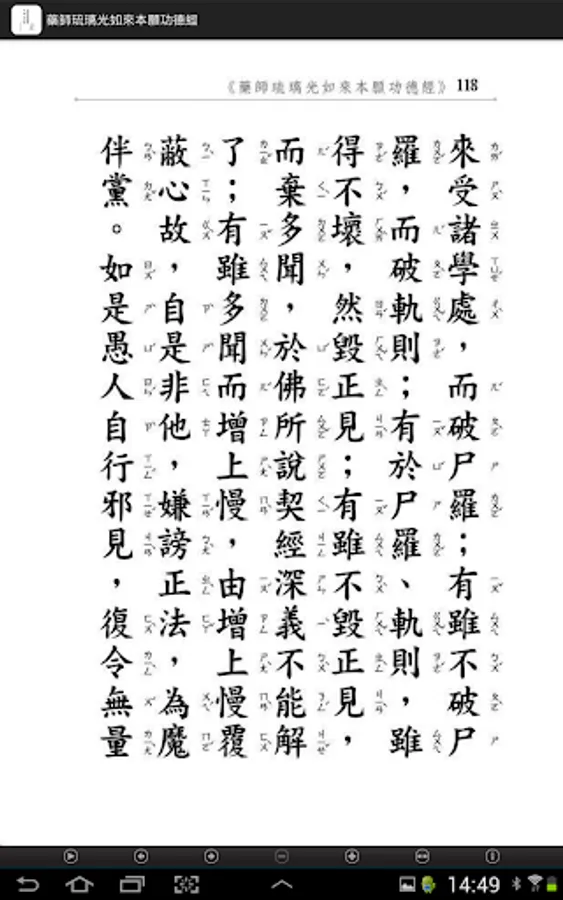 藥師琉璃光如來本願功德經
《藥師琉璃光如來本願功德經》 118
來受諸學處，而破尸羅；有雖不破尸
羅，而破軌則；有於尸羅、軌則，雖
得不壞，然毀正見；有雖不毀正見，
而棄多聞，於佛所說契經深義不能解
了；有雖多聞而增上慢，由增上慢覆
蔽心故，自是非他，嫌謗正法，為魔
伴黨。如是愚人自行邪見，復令無量
14:49